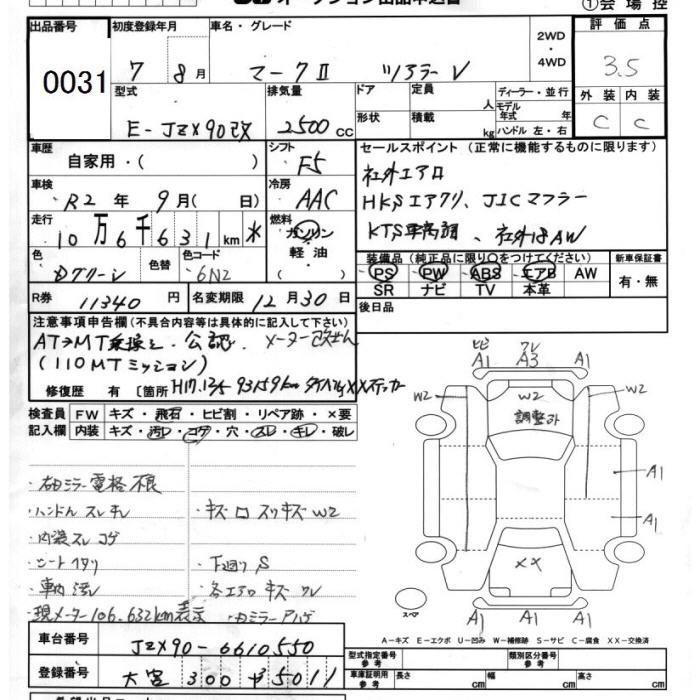 オークション出品申込書
①会場控
出品番号
0031
初度登録年月
7 8月
車名・グレード
マークⅡ ツアラーV
2WD
・
4WD
評価点
3.5
外装 内装
C C
型式
E-JZX90改
排気量
2500cc
ドア
形状
定員
人
積載
kg
ディーラー・並行
モデル
年式
年
ハンドル 左・右
車歴
自家用・( )
シフト
F5
セールスポイント (正常に機能するものに限ります)
社外エアロ
HKSエアクリ、JICマフラー
KTS車高調、社外18AW
車検
R2年 9月( 日)
冷房
AAC
走行
10万6千631km
燃料
ガソリン
軽油
( )
色
Dグリーン
色替
色コード
6N2
装備品 (純正品に限り○をつけてください)
PS PW ABS エアB AW
SR ナビ TV 本革
新車保証書
有・無
R券
11340円
名変期限
12月30日
後日品
注意事項申告欄(不具合内容等は具体的に記入して下さい)
AT→MT乗換え・公認
(110MTミッション)
修復歴 有 〔箇所
検査員
記入欄
FW キズ・飛石・ヒビ割・リペア跡・×要
内装 キズ・汚レ・コゲ・穴・スレ・キレ・破レ
ヒビ ワレ
A1 A3 A1
W2 W2 W2
調整外
A1
A1
××
A1 A1 A1
スペア
・右ミラー電格不良
・ハンドル スレ キレ
・内装スレ コゲ
・シート ヘタリ
・車内汚レ
・現メーター106.632km表示
・キズ ロ スリキズ W2
・下廻り S
・各エアロ キズ ワレ
A-キズ E-エクボ U-凹み W-補修跡 S-サビ C-腐食 XX-交換済
車台番号
JZX90-6610550
登録番号
大宮 300 す5011
型式指定番号
参考
類別区分番号
参考
車庫証明用
参考
長さ cm 幅 cm 高さ cm